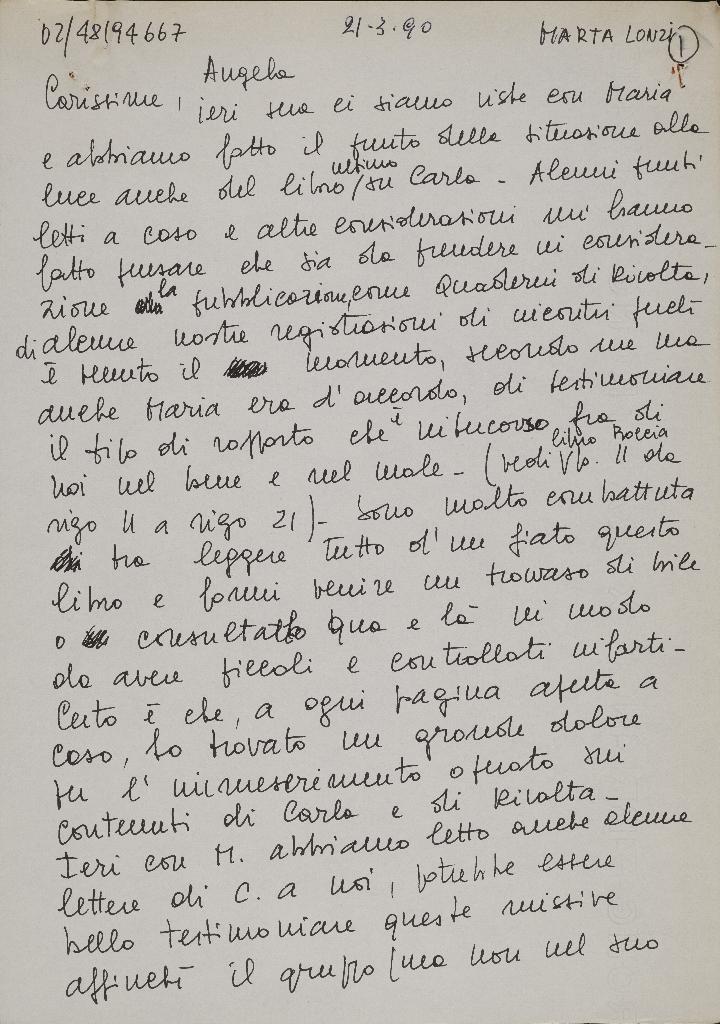 02/48194667 21-3-90 MARTA LONZI 1
Angela
Carissime, ieri sera ci siamo viste con Maria
e abbiamo fatto il punto della situazione alla
ultimo
luce anche del libro/su Carla - Alcuni punti
letti a caso e altre considerazioni mi hanno
fatto pensare che sia da prendere in considera-
zione la pubblicazione, come Quaderni di Rivolta,
di alcune nostre registrazioni di incontri perché
è venuto il momento, secondo me ma
anche Maria era d'accordo, di testimoniare
il filo di rapporto che è intercorso fra di
libro Boccia
noi nel bene e nel male - (vedi p. 11 da
rigo 11 a rigo 21) - Sono molto combattuta
tra leggere tutto d'un fiato questo
libro e farmi venire un travaso di bile
o consultarlo qua e là in modo
da avere piccoli e controllati infarti -
Certo è che, a ogni pagina aperta a
caso, ho trovato un grande dolore
per l'immiserimento operato sui
contenuti di Carla e di Rivolta -
Ieri con M. abbiamo letto anche alcune
lettere di C. a noi, potrebbe essere
bello testimoniare queste missive
affinché il gruppo (ma non nel suo